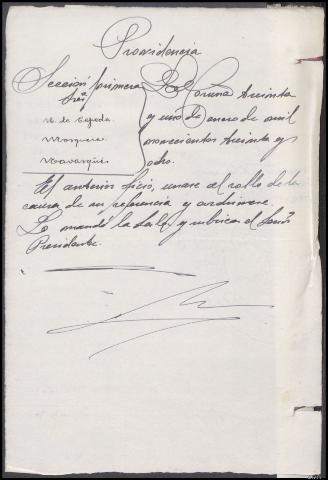 Providencia
Sección primera
Srs.
V. de Cepeda
Mosquera
Navarque
La Coruña treinta
y uno de Enero de mil
novecientos treinta y
ocho.
El anterior oficio, unase al rollo de la
causa de su referencia y archivese.
Lo mandó la Sala y rubrica el Señor
Presidente.